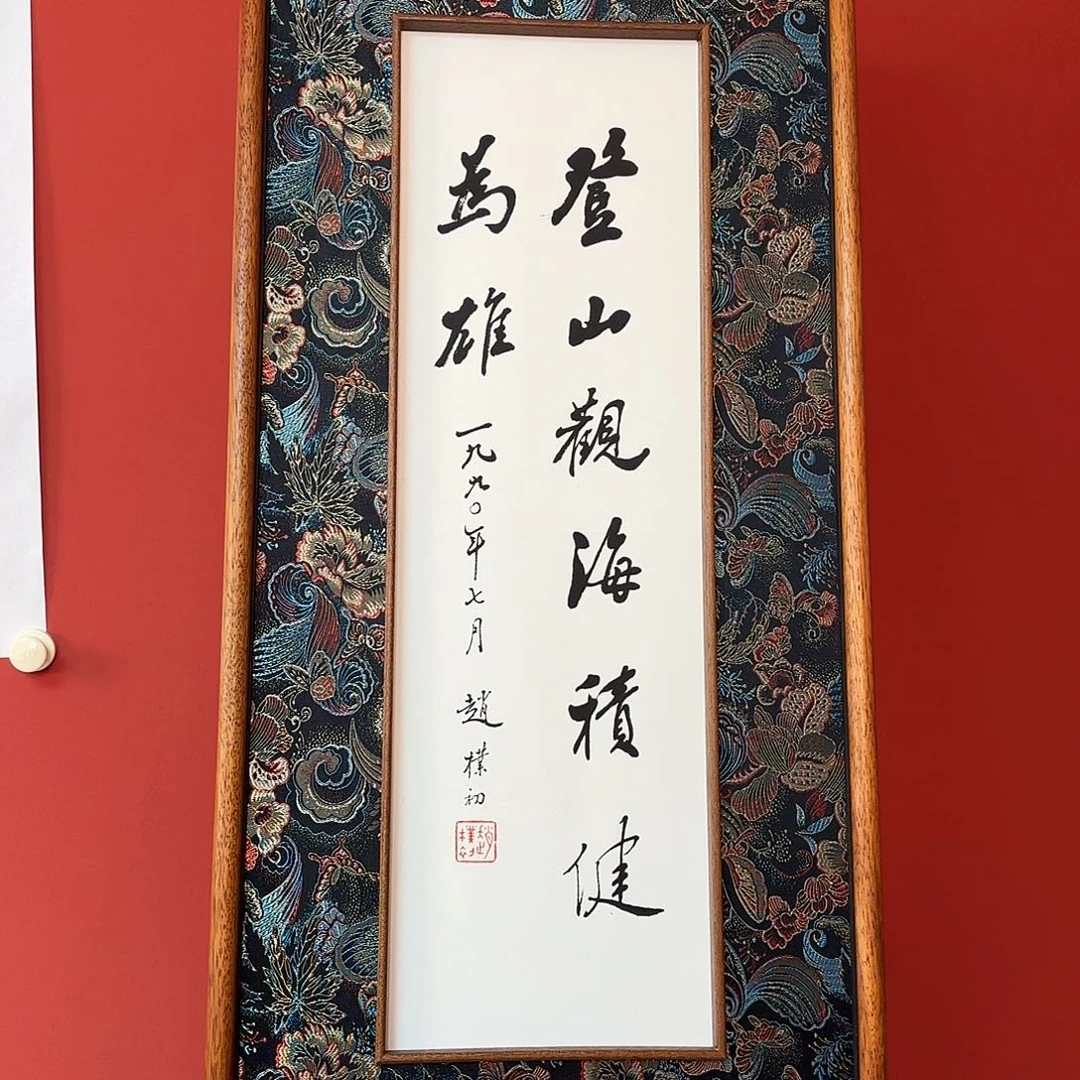 登山觀海積健
為雄
一九九〇年七月 趙樸初
趙樸初